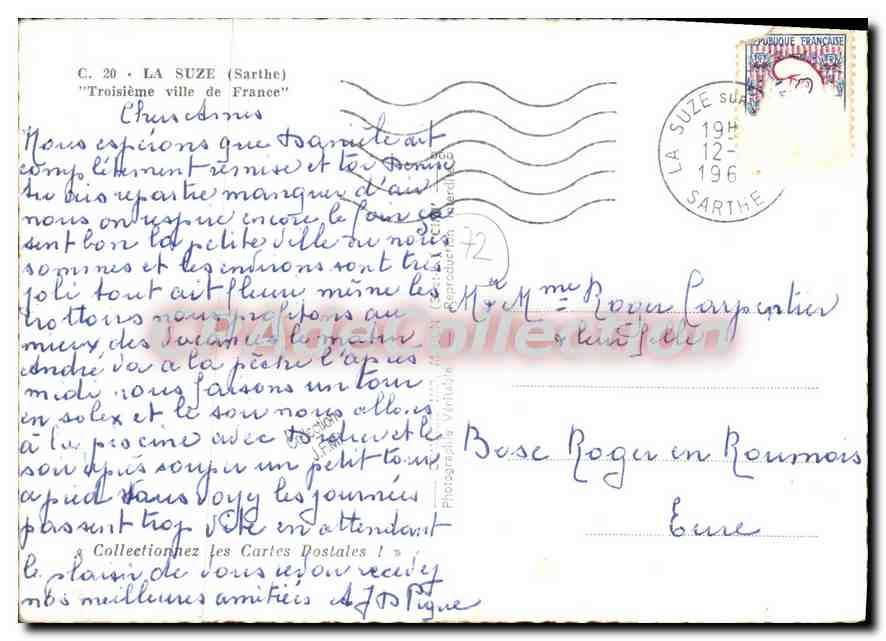 C. 20 - LA SUZE (Sarthe)
"Troisième ville de France"
Chers Amis
Nous espérons que Daniele ait
complètement remise et toi Denise
tu vas repartre manquer d'air
nous on respire encore le foin ça
sent bon la petite ville ou nous
sommes et les environs sont très
joli tout ait fleuri même les
trottoirs nous profitons au
mieux des vacances le matin
André va à la pêche l'après
midi nous faisons un tour
en solex et le soir nous allons
à la piscine avec et le
soir après souper un petit tour
a pied vous voyez les journées
passent trop vite en attendant
« Collectionnez les Cartes Postales ! »
le plaisir de vous revoir recevez
nos meilleures amitiés A J D Pigue
Photographie Véritable Reproduction interdite
72
REPUBLIQUE FRANÇAISE
LA SUZE SUR
19H
12-
196
SARTHE
Mr et Mme Roger Carpentier
& leur fille
Bosc Roger en Roumois
Eure
CPAdeCollection
Collection
J.F.M.